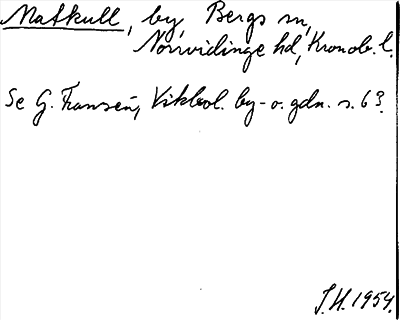 Matkull, by, Bergs sn,
Norrvidinge hd, Kronob. l.
Se G. Franzén, Vikbol. by- o. gdn. s. 63.
J.H. 1954.